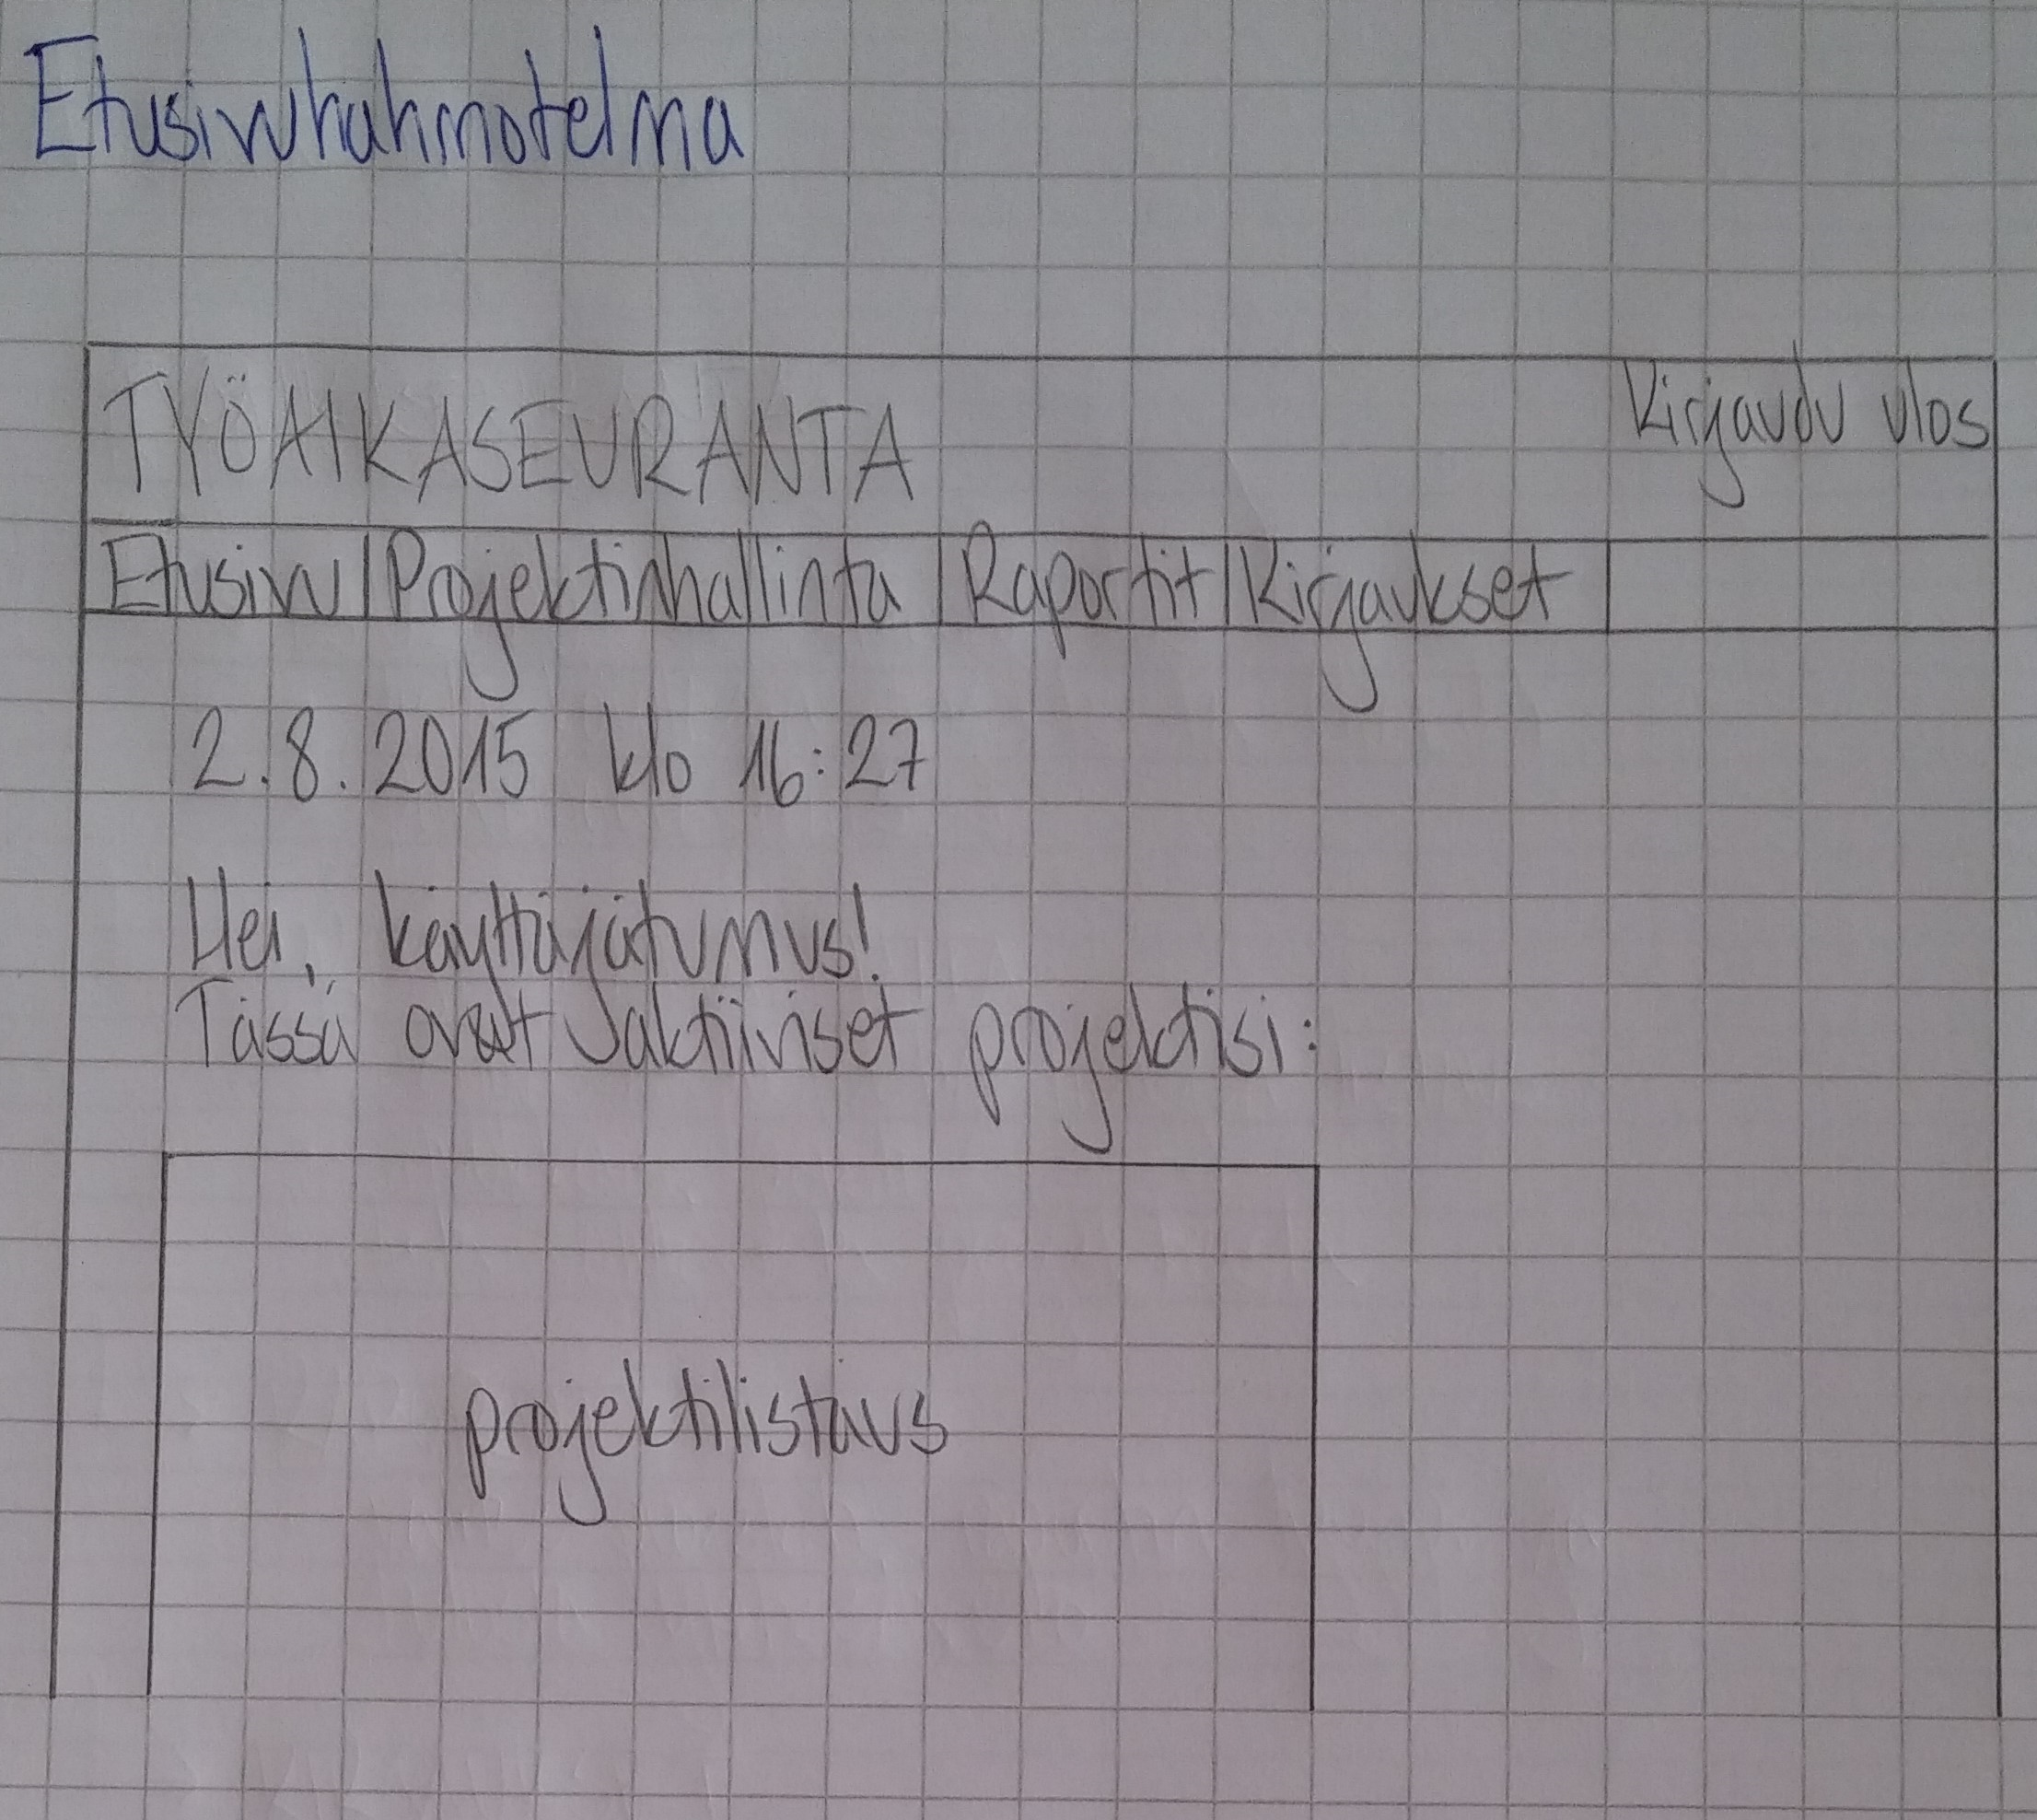 Etusivuhahmotelma
TYÖAIKASEURANTA
Kirjaudu ulos
Etusivu Projektinhallinta Raportit Kirjaukset
2.8.2015 klo 16:27
Hei, käyttäjätunnus!
Tässä ovat aktiiviset projektisi:
projektilistaus